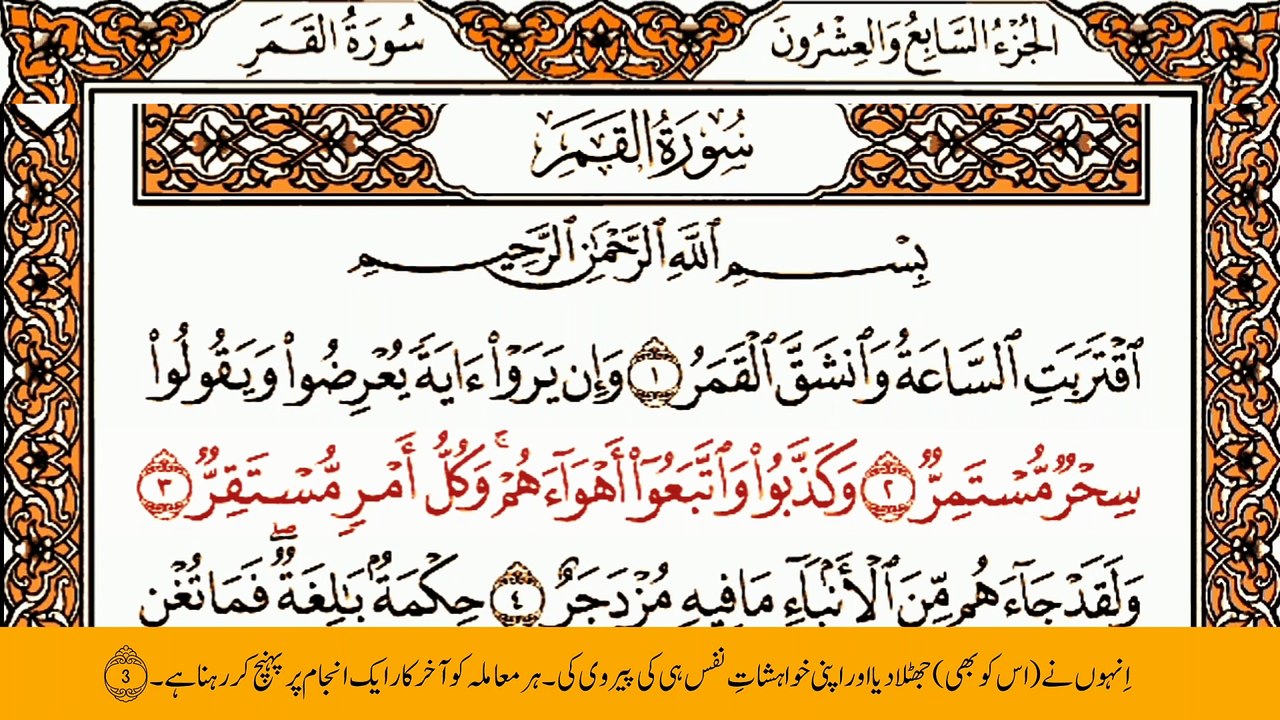 الجُزْءُ السَّابِعُ وَالعِشْرُونَ
سُورَةُ القَمَرِ
سُورَةُ القَمَرِ
بِسْمِ ٱللَّهِ ٱلرَّحْمَٰنِ ٱلرَّحِيمِ
ٱقْتَرَبَتِ ٱلسَّاعَةُ وَٱنشَقَّ ٱلْقَمَرُ ١ وَإِن يَرَوْا۟ ءَايَةً يُعْرِضُوا۟ وَيَقُولُوا۟
سِحْرٌ مُّسْتَمِرٌّ ٢ وَكَذَّبُوا۟ وَٱتَّبَعُوٓا۟ أَهْوَآءَهُمْ ۚ وَكُلُّ أَمْرٍ مُّسْتَقِرٌّ ٣
وَلَقَدْ جَآءَهُم مِّنَ ٱلْأَنۢبَآءِ مَا فِيهِ مُزْدَجَرٌ ٤ حِكْمَةٌۢ بَٰلِغَةٌ ۖ فَمَا تُغْنِ
اِنہوں نے (اس کو بھی) جھٹلا دیا اور اپنی خواہشاتِ نفس ہی کی پیروی کی۔ ہر معاملہ کو آخر کار ایک انجام پر پہنچ کر رہنا ہے۔ 3